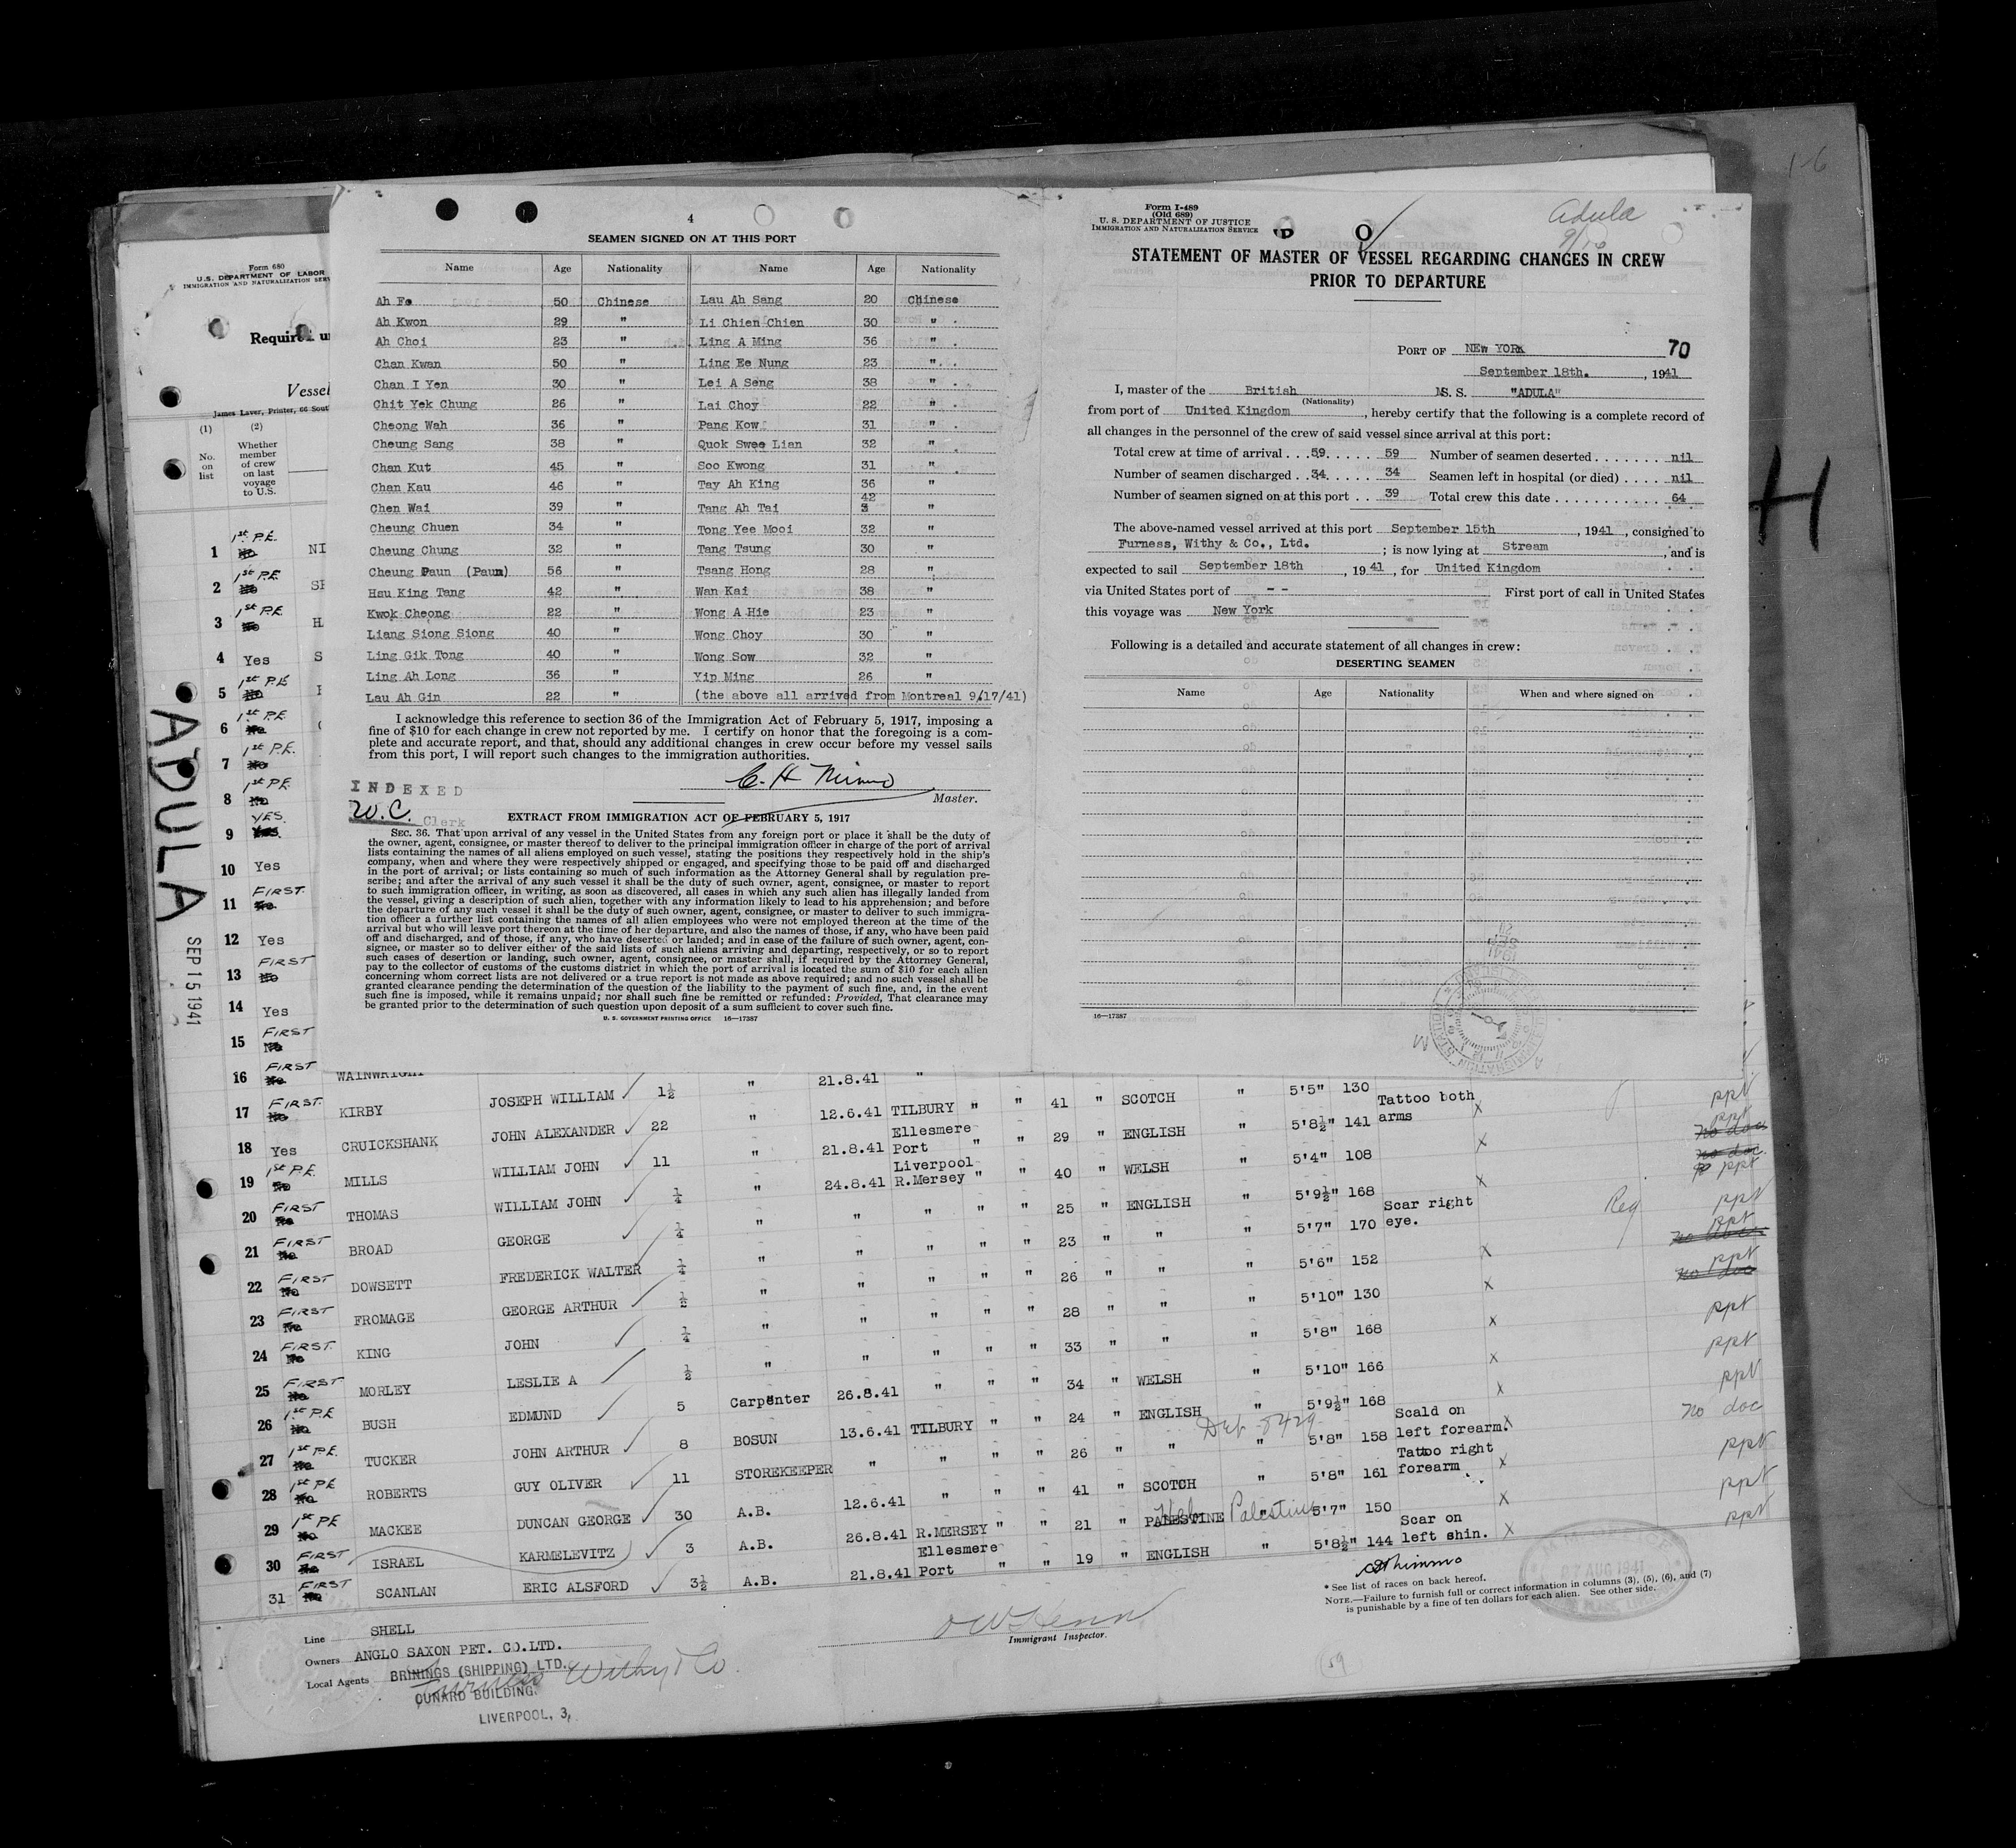 4
SEAMEN SIGNED ON AT THIS PORT
Name Age Nationality Name Age Nationality
Ah Fo 50 Chinese Lau Ah Sang 20 Chinese
Ah Kwon 29 " Li Chien Chien 30 "
Ah Choi 23 " Ling A Ming 36 "
Chan Kwan 50 " Ling Ee Nung 23 "
Chan I Yen 30 " Lei A Seng 38 "
Chit Yek Chung 26 " Lai Choy 22 "
Cheong Wah 36 " Pang Kow 31 "
Cheung Sang 38 " Quok Swee Lian 32 "
Chan Kut 45 " Soo Kwong 31 "
Chan Kau 46 " Tay Ah King 36 "
Chen Wai 39 " Tang Ah Tai 42 "
Cheung Chuen 34 " Tong Yee Mooi 32 "
Cheung Chung 32 " Tang Tsung 30 "
Cheung Paun (Paun) 56 " Tsang Hong 28 "
Hsu King Tang 42 " Wan Kai 38 "
Kwok Cheong 22 " Wong A Hie 23 "
Liang Siong Siong 40 " Wong Choy 30 "
Ling Gik Tong 40 " Wong Sow 32 "
Ling Ah Long 36 " Yip Ming 26 "
Lau Ah Gin 22 " (the above all arrived from Montreal 9/17/41)
I acknowledge this reference to section 36 of the Immigration Act of February 5, 1917, imposing a
fine of $10 for each change in crew not reported by me. I certify on honor that the foregoing is a com-
plete and accurate report, and that, should any additional changes in crew occur before my vessel sails
from this port, I will report such changes to the immigration authorities.
C. H Nimmo
Master.
INDEXED
W.C. Clerk
EXTRACT FROM IMMIGRATION ACT OF FEBRUARY 5, 1917
SEC. 36. That upon arrival of any vessel in the United States from any foreign port or place it shall be the duty of
the owner, agent, consignee, or master thereof to deliver to the principal immigration officer in charge of the port of arrival
lists containing the names of all aliens employed on such vessel, stating the positions they respectively hold in the ship's
company, when and where they were respectively shipped or engaged, and specifying those to be paid off and discharged
in the port of arrival; or lists containing so much of such information as the Attorney General shall by regulation pre-
scribe; and after the arrival of any such vessel it shall be the duty of such owner, agent, consignee, or master to report
to such immigration officer, in writing, as soon as discovered, all cases in which any such alien has illegally landed from
the vessel, giving a description of such alien, together with any information likely to lead to his apprehension; and before
the departure of any such vessel it shall be the duty of such owner, agent, consignee, or master to deliver to such immigra-
tion officer a further list containing the names of all alien employees who were not employed thereon at the time of the
arrival but who will leave port thereon at the time of her departure, and also the names of those, if any, who have been paid
off and discharged, and of those, if any, who have deserted or landed; and in case of the failure of such owner, agent, con-
signee, or master so to deliver either of the said lists of such aliens arriving and departing, respectively, or so to report
such cases of desertion or landing, such owner, agent, consignee, or master shall, if required by the Attorney General,
pay to the collector of customs of the customs district in which the port of arrival is located the sum of $10 for each alien
concerning whom correct lists are not delivered or a true report is not made as above required; and no such vessel shall be
granted clearance pending the determination of the question of the liability to the payment of such fine, and, in the event
such fine is imposed, while it remains unpaid; nor shall such fine be remitted or refunded: Provided, That clearance may
be granted prior to the determination of such question upon deposit of a sum sufficient to cover such fine.
U. S. GOVERNMENT PRINTING OFFICE 16—17387
Form I-489
(Old 689)
U. S. DEPARTMENT OF JUSTICE
IMMIGRATION AND NATURALIZATION SERVICE
Adula
9/16
STATEMENT OF MASTER OF VESSEL REGARDING CHANGES IN CREW
PRIOR TO DEPARTURE
PORT OF NEW YORK 70
September 18th. , 1941
I, master of the British M.S. S. "ADULA"
(Nationality)
from port of United Kingdom , hereby certify that the following is a complete record of
all changes in the personnel of the crew of said vessel since arrival at this port:
Total crew at time of arrival . . 59. . . . . . 59 Number of seamen deserted . . . . . . . nil
Number of seamen discharged . . 34. . . . . 34 Seamen left in hospital (or died) . . . . nil
Number of seamen signed on at this port . . 39 Total crew this date . . . . . . . . . . . 64
The above-named vessel arrived at this port September 15th , 1941 , consigned to
Furness, Withy & Co., Ltd. ; is now lying at Stream , and is
expected to sail September 18th , 19 41 , for United Kingdom
via United States port of - - First port of call in United States
this voyage was New York
Following is a detailed and accurate statement of all changes in crew:
DESERTING SEAMEN
Name Age Nationality When and where signed on
16—17387
1-6
H
Form 680
U. S. DEPARTMENT OF LABOR
IMMIGRATION AND NATURALIZATION SERV
Required un
Vessel
James Laver, Printer, 66 Sout
(1) (2)
No. on list
Whether member of crew on last voyage to U.S.
ADULA
SEP 15 1941
1 1st P.E. NI
2 1st P.E SH
3 1st P.E HA
4 Yes S
5 1st P.E
6 1st P.E
7 1st P.E.
8 1st P.E.
9 YES.
10 Yes
11 FIRST.
12 Yes
13 FIRST No
14 Yes
15 FIRST No
16 FIRST No WAINWRIGHT
17 FIRST. No KIRBY JOSEPH WILLIAM ✓ 1½ " 21.8.41 "
18 Yes CRUICKSHANK JOHN ALEXANDER ✓ 22 " 12.6.41 TILBURY " " 41 " SCOTCH " 5'5" 130 Tattoo both arms ppt
19 1st P.E. No MILLS WILLIAM JOHN ✓ 11 " 21.8.41 Ellesmere Port " " 29 " ENGLISH " 5'8½" 141 X ppt no doc
20 FIRST No THOMAS WILLIAM JOHN ✓ ¼ " 24.8.41 Liverpool R.Mersey " " 40 " WELSH " 5'4" 108 X no doc. ppt
21 FIRST No BROAD GEORGE ✓ ¼ " " " " " 25 " ENGLISH " 5'9½" 168 Scar right eye. X Reg ppt
22 FIRST No DOWSETT FREDERICK WALTER ✓ ¼ " " " " " 23 " " " 5'7" 170 ppt no doc
23 FIRST No FROMAGE GEORGE ARTHUR ✓ ½ " " " " " 26 " " " 5'6" 152 X ppt no doc
24 FIRST. No KING JOHN ✓ ¼ " " " " " 28 " " " 5'10" 130 X ppt
25 FIRST No MORLEY LESLIE A ✓ ½ " " " " " 33 " " " 5'8" 168 X ppt
26 1st P.E No BUSH EDMUND ✓ 5 Carpenter 26.8.41 " " " 34 " WELSH " 5'10" 166 X ppt
27 1st P.E. No TUCKER JOHN ARTHUR ✓ 8 BOSUN 13.6.41 TILBURY " " 24 " ENGLISH " 5'9½" 168 Scald on left forearm. X no doc
28 1st P.E No ROBERTS GUY OLIVER ✓ 11 STOREKEEPER " " " 26 " " " 5'8" 158 Tattoo right forearm X ppt
29 1st P.E No MACKEE DUNCAN GEORGE ✓ 30 A.B. 12.6.41 " " " 41 " SCOTCH " 5'8" 161 ppt
30 FIRST No ISRAEL KARMELEVITZ ✓ 3 A.B. 26.8.41 R.MERSEY " " 21 " PALESTINE Palestine 5'7" 150 X ppt
31 FIRST No SCANLAN ERIC ALSFORD ✓ 3½ A.B. 21.8.41 Ellesmere Port " " 19 " ENGLISH " 5'8½" 144 Scar on left shin. X
Line SHELL
Owners ANGLO SAXON PET. CO.LTD.
Local Agents BRININGS (SHIPPING) LTD.
Furness Withy & Co.
CUNARD BUILDING.
LIVERPOOL, 3,
Immigrant Inspector.
* See list of races on back hereof.
NOTE.—Failure to furnish full or correct information in columns (3), (5), (6), and (7)
is punishable by a fine of ten dollars for each alien. See other side.
27 AUG 1941
59